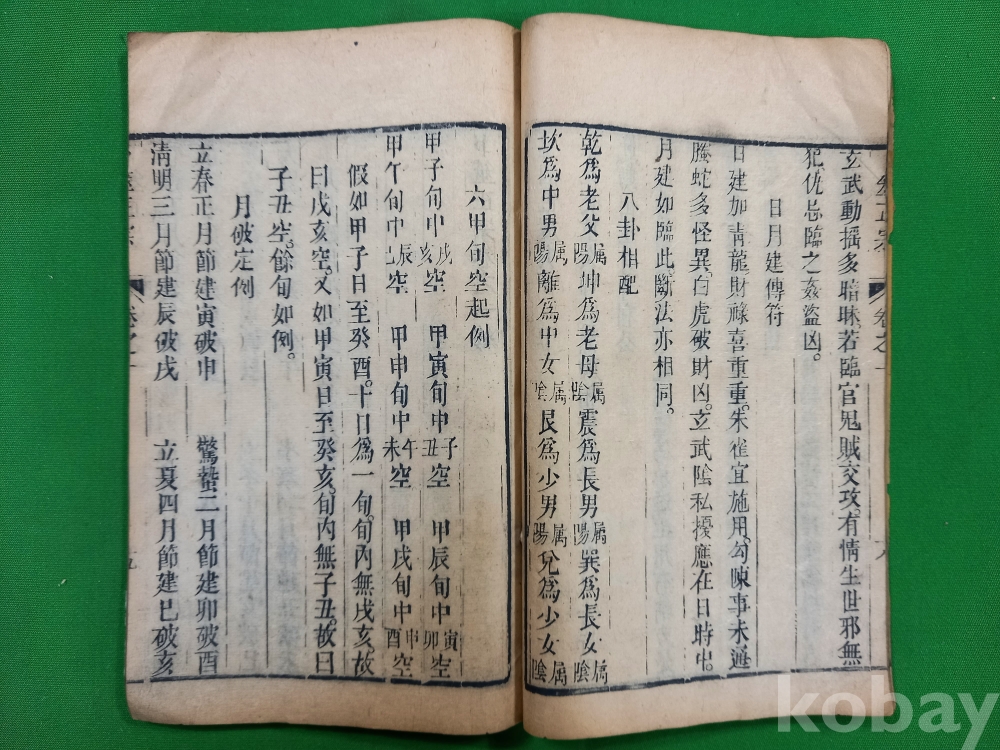 玄武動搖多暗昧。若臨官鬼賊交攻。有情生世邪無
犯。仇忌臨之姦盜凶。
日月建傳符
日建加靑龍。財祿喜重重。朱雀宜施用。勾陳事未通。
螣蛇多怪異。白虎破財凶。玄武陰私擾。應在日時中。
月建如臨此。斷法亦相同。
八卦相配
乾爲老父屬陽 坤爲老母屬陰 震爲長男屬陽 巽爲長女屬陰
坎爲中男屬陽 離爲中女屬陰 艮爲少男屬陽 兌爲少女屬陰
六甲旬空起例
甲子旬中戌亥空 甲寅旬中子丑空 甲辰旬中寅卯空
甲午旬中辰巳空 甲申旬中午未空 甲戌旬中申酉空
假如甲子日至癸酉。十日爲一旬。旬內無戌亥。故
曰戌亥空。又如甲寅日至癸亥。旬內無子丑。故曰
子丑空。餘旬如例。
月破定例
立春正月節建寅破申 驚蟄二月節建卯破酉
淸明三月節建辰破戌 立夏四月節建巳破亥
卷之一
八
正宗
卷之一
五
kobay